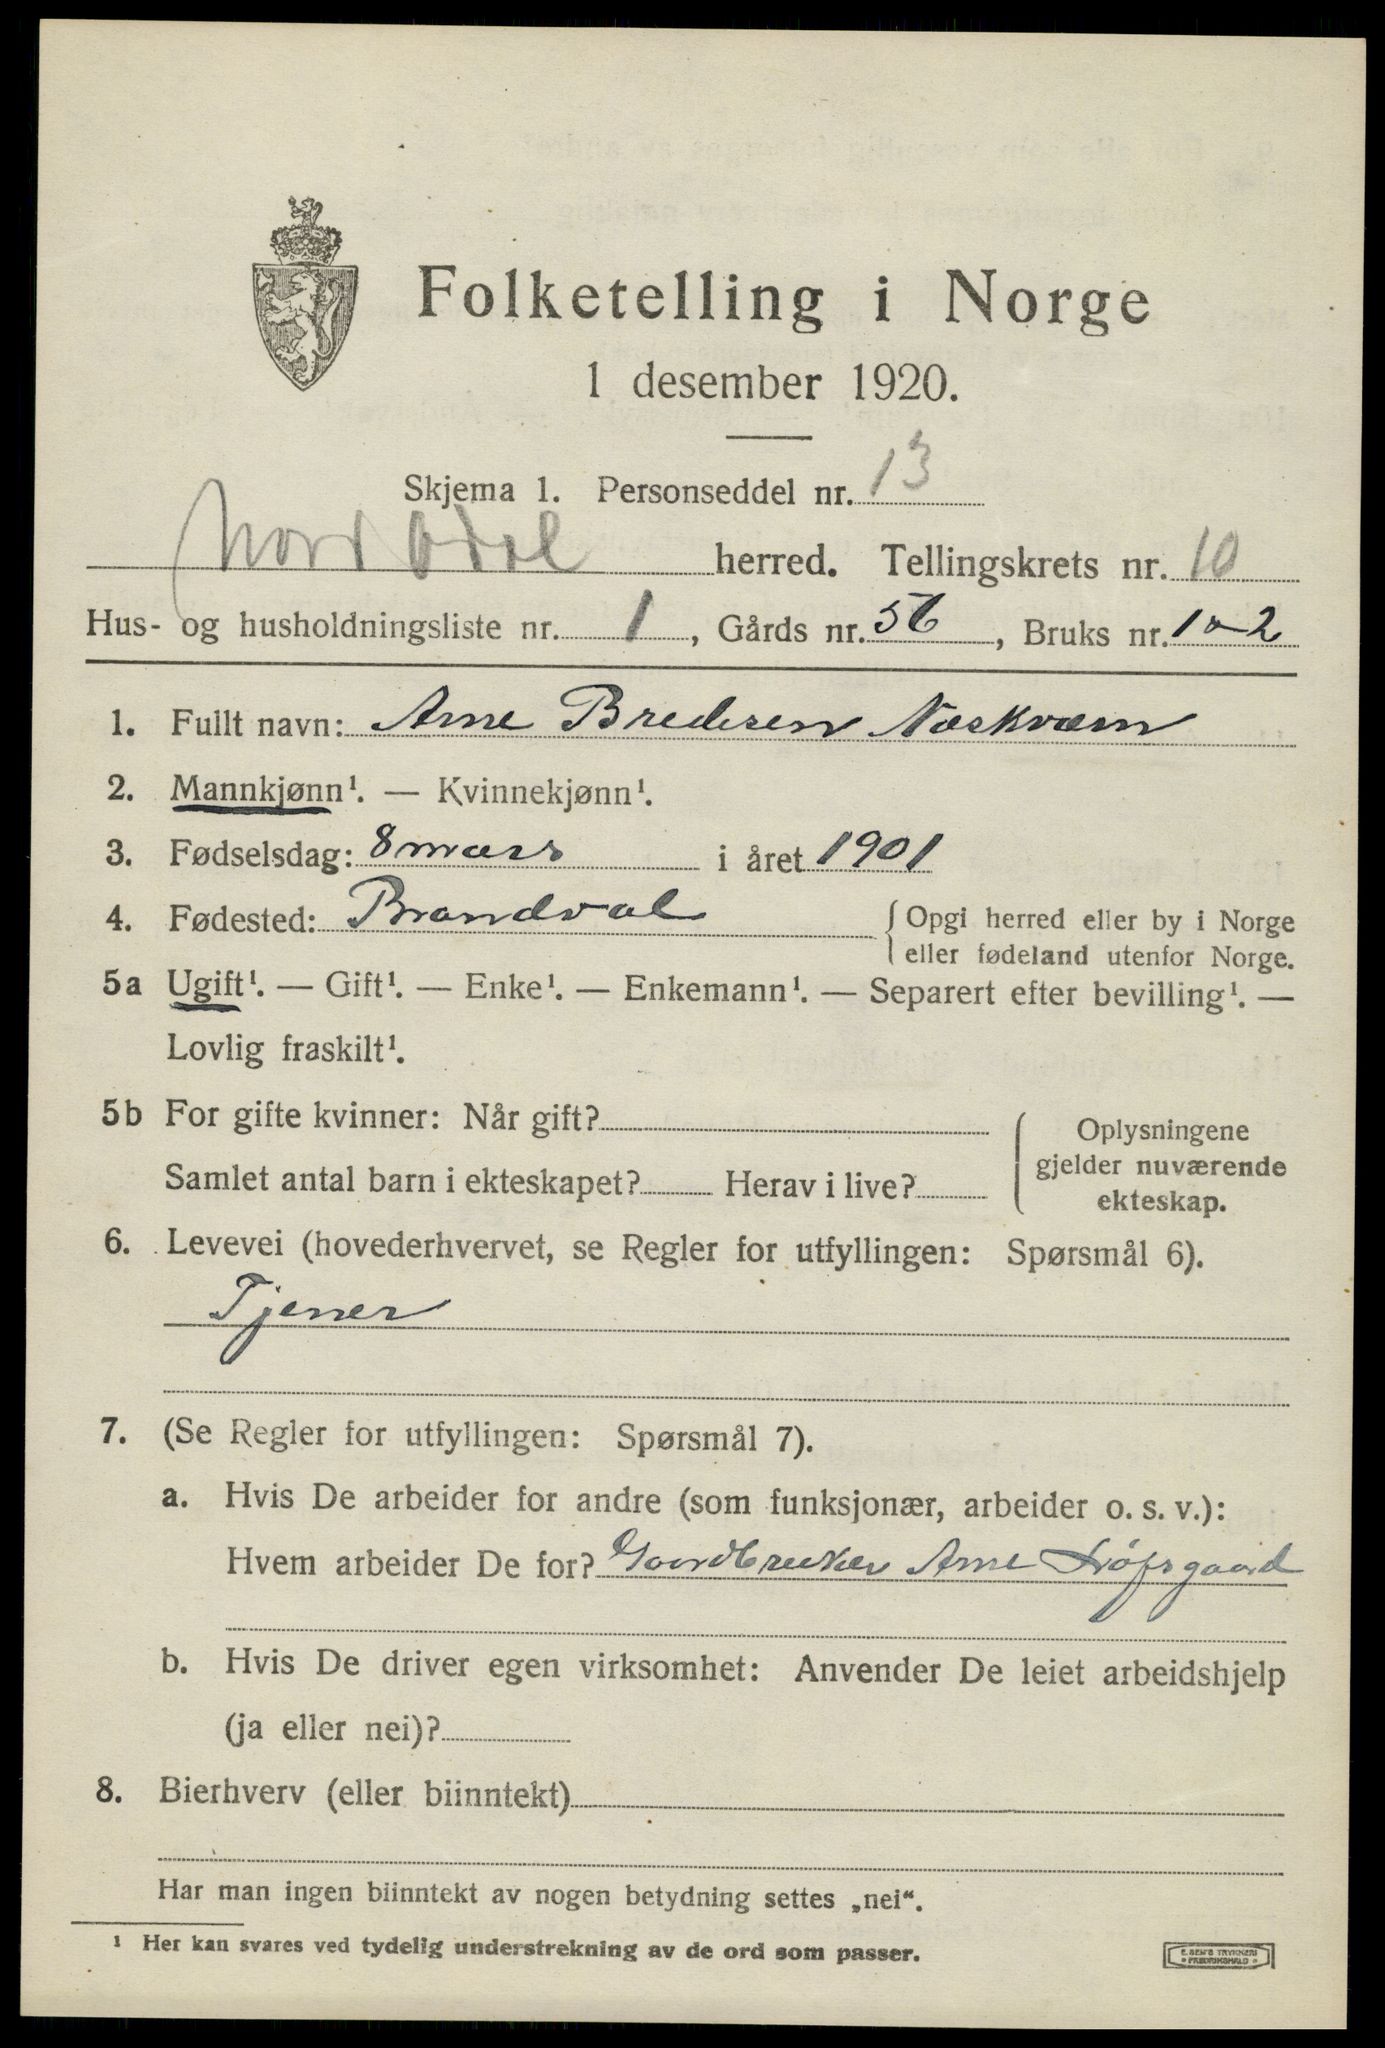 Folketelling i Norge
1 desember 1920.
Skjema 1. Personseddel nr. 13
Nord Odal herred. Tellingskrets nr. 10
Hus- og husholdningsliste nr. 1, Gårds nr. 56, Bruks nr. 1 o 2
1. Fullt navn: Arne Bredesen Næskværn
2. Mannkjønn¹. — Kvinnekjønn¹.
3. Fødselsdag: 8 mars i året 1901
4. Fødested: Brandval { Opgi herred eller by i Norge
eller fødeland utenfor Norge.
5a Ugift¹. — Gift¹. — Enke¹. — Enkemann¹. — Separert efter bevilling¹. —
Lovlig fraskilt¹.
5b For gifte kvinner: Når gift?
Samlet antal barn i ekteskapet? Herav i live?
Oplysningene
gjelder nuværende
ekteskap.
6. Levevei (hovederhvervet, se Regler for utfyllingen: Spørsmål 6).
Tjener
7. (Se Regler for utfyllingen: Spørsmål 7).
a. Hvis De arbeider for andre (som funksjonær, arbeider o. s. v.):
Hvem arbeider De for? Gaardbruker Arne
b. Hvis De driver egen virksomhet: Anvender De leiet arbeidshjelp
(ja eller nei)?
8. Bierhverv (eller biinntekt)
Har man ingen biinntekt av nogen betydning settes „nei“.
¹ Her kan svares ved tydelig understrekning av de ord som passer.